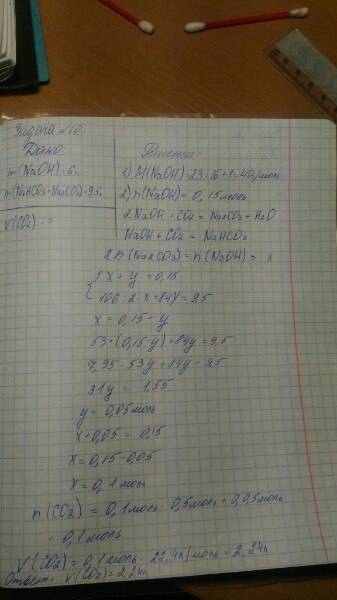 Задача №10
Дано
m(NaOH)=6г
m(NaHCO3+Na2CO3)=9,5г
V(CO2)-?
Решение
1) M(NaOH)=23+16+1=40г/моль
2) n(NaOH)= 0,15моль
2NaOH+CO2=Na2CO3+H2O
NaOH+CO2=NaHCO3
2n(Na2CO3)=n(NaOH)= x
x+y=0,15
106:2·x+84y=9,5
x=0,15-y
53*(0,15-y)+84y=9,5
7,95-53y+84y=9,5
31y=1,55
y=0,05моль
x+0,05=0,15
x=0,15-0,05
x=0,1моль
n(CO2)=0,1моль·0,5моль+0,05моль
=0,1моль
V(CO2)=0,1моль·22,4л/моль=2,24л
Ответ: V(CO2)=2,24л